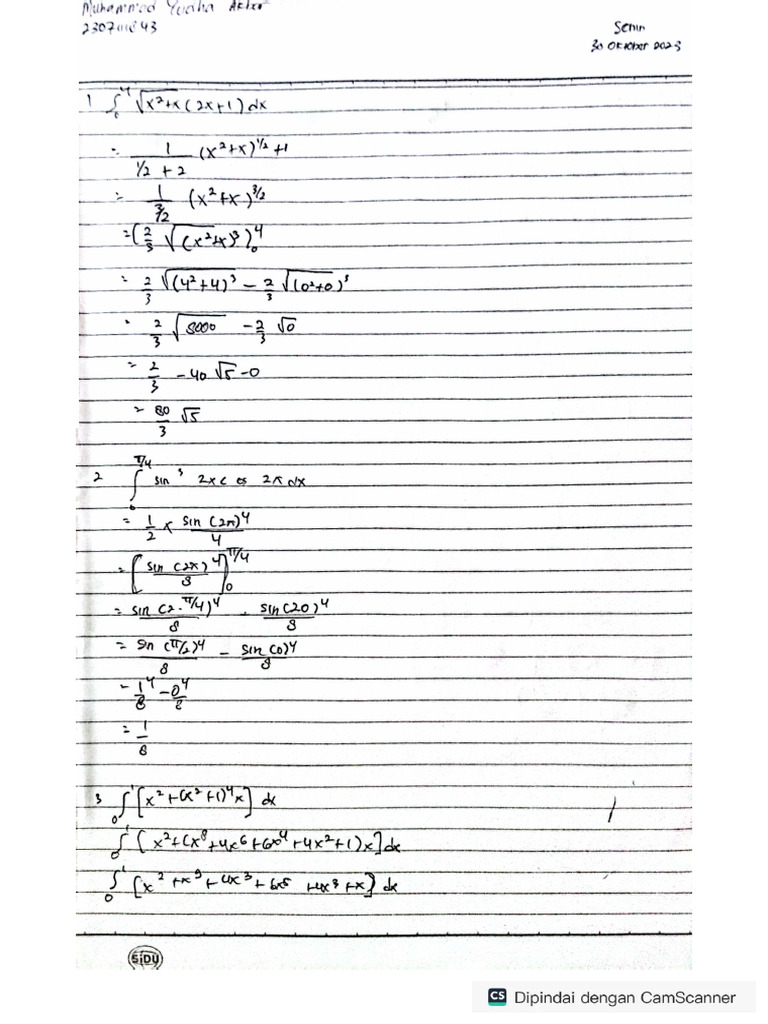 Muhammad Yudha
Senin
30 Oktober 2023
1 ∫₀⁴ √x²+x (2x+1) dx
= 1/(1/2 + 2) (x²+x)^1/2 +1
= 1/(3/2) (x²+x)^3/2
= (2/3 √(x²+x)³)₀⁴
= 2/3 √(4²+4)³ - 2/3 √(0²+0)³
= 2/3 √8000 - 2/3 √0
= 2/3 - 40 √5 - 0
= 80/3 √5
2 ∫₀^π/4 sin³ 2x cos 2x dx
= 1/2 × sin (2x)⁴/4
= [sin (2x)⁴/8]₀^π/4
= sin (2·π/4)⁴/8 - sin (20)⁴/8
= sin (π/2)⁴/8 - sin (0)⁴/8
= 1⁴/8 - 0⁴/8
= 1/8
3 ∫₀¹ [x²+(x²+1)⁴x] dx
∫₀¹ [x²+(x⁸+4x⁶+6x⁴+4x²+1)x] dx
∫₀¹ [x²+x⁹+4x³+6x⁵ +4x³+x] dx
SiDU
CS Dipindai dengan CamScanner